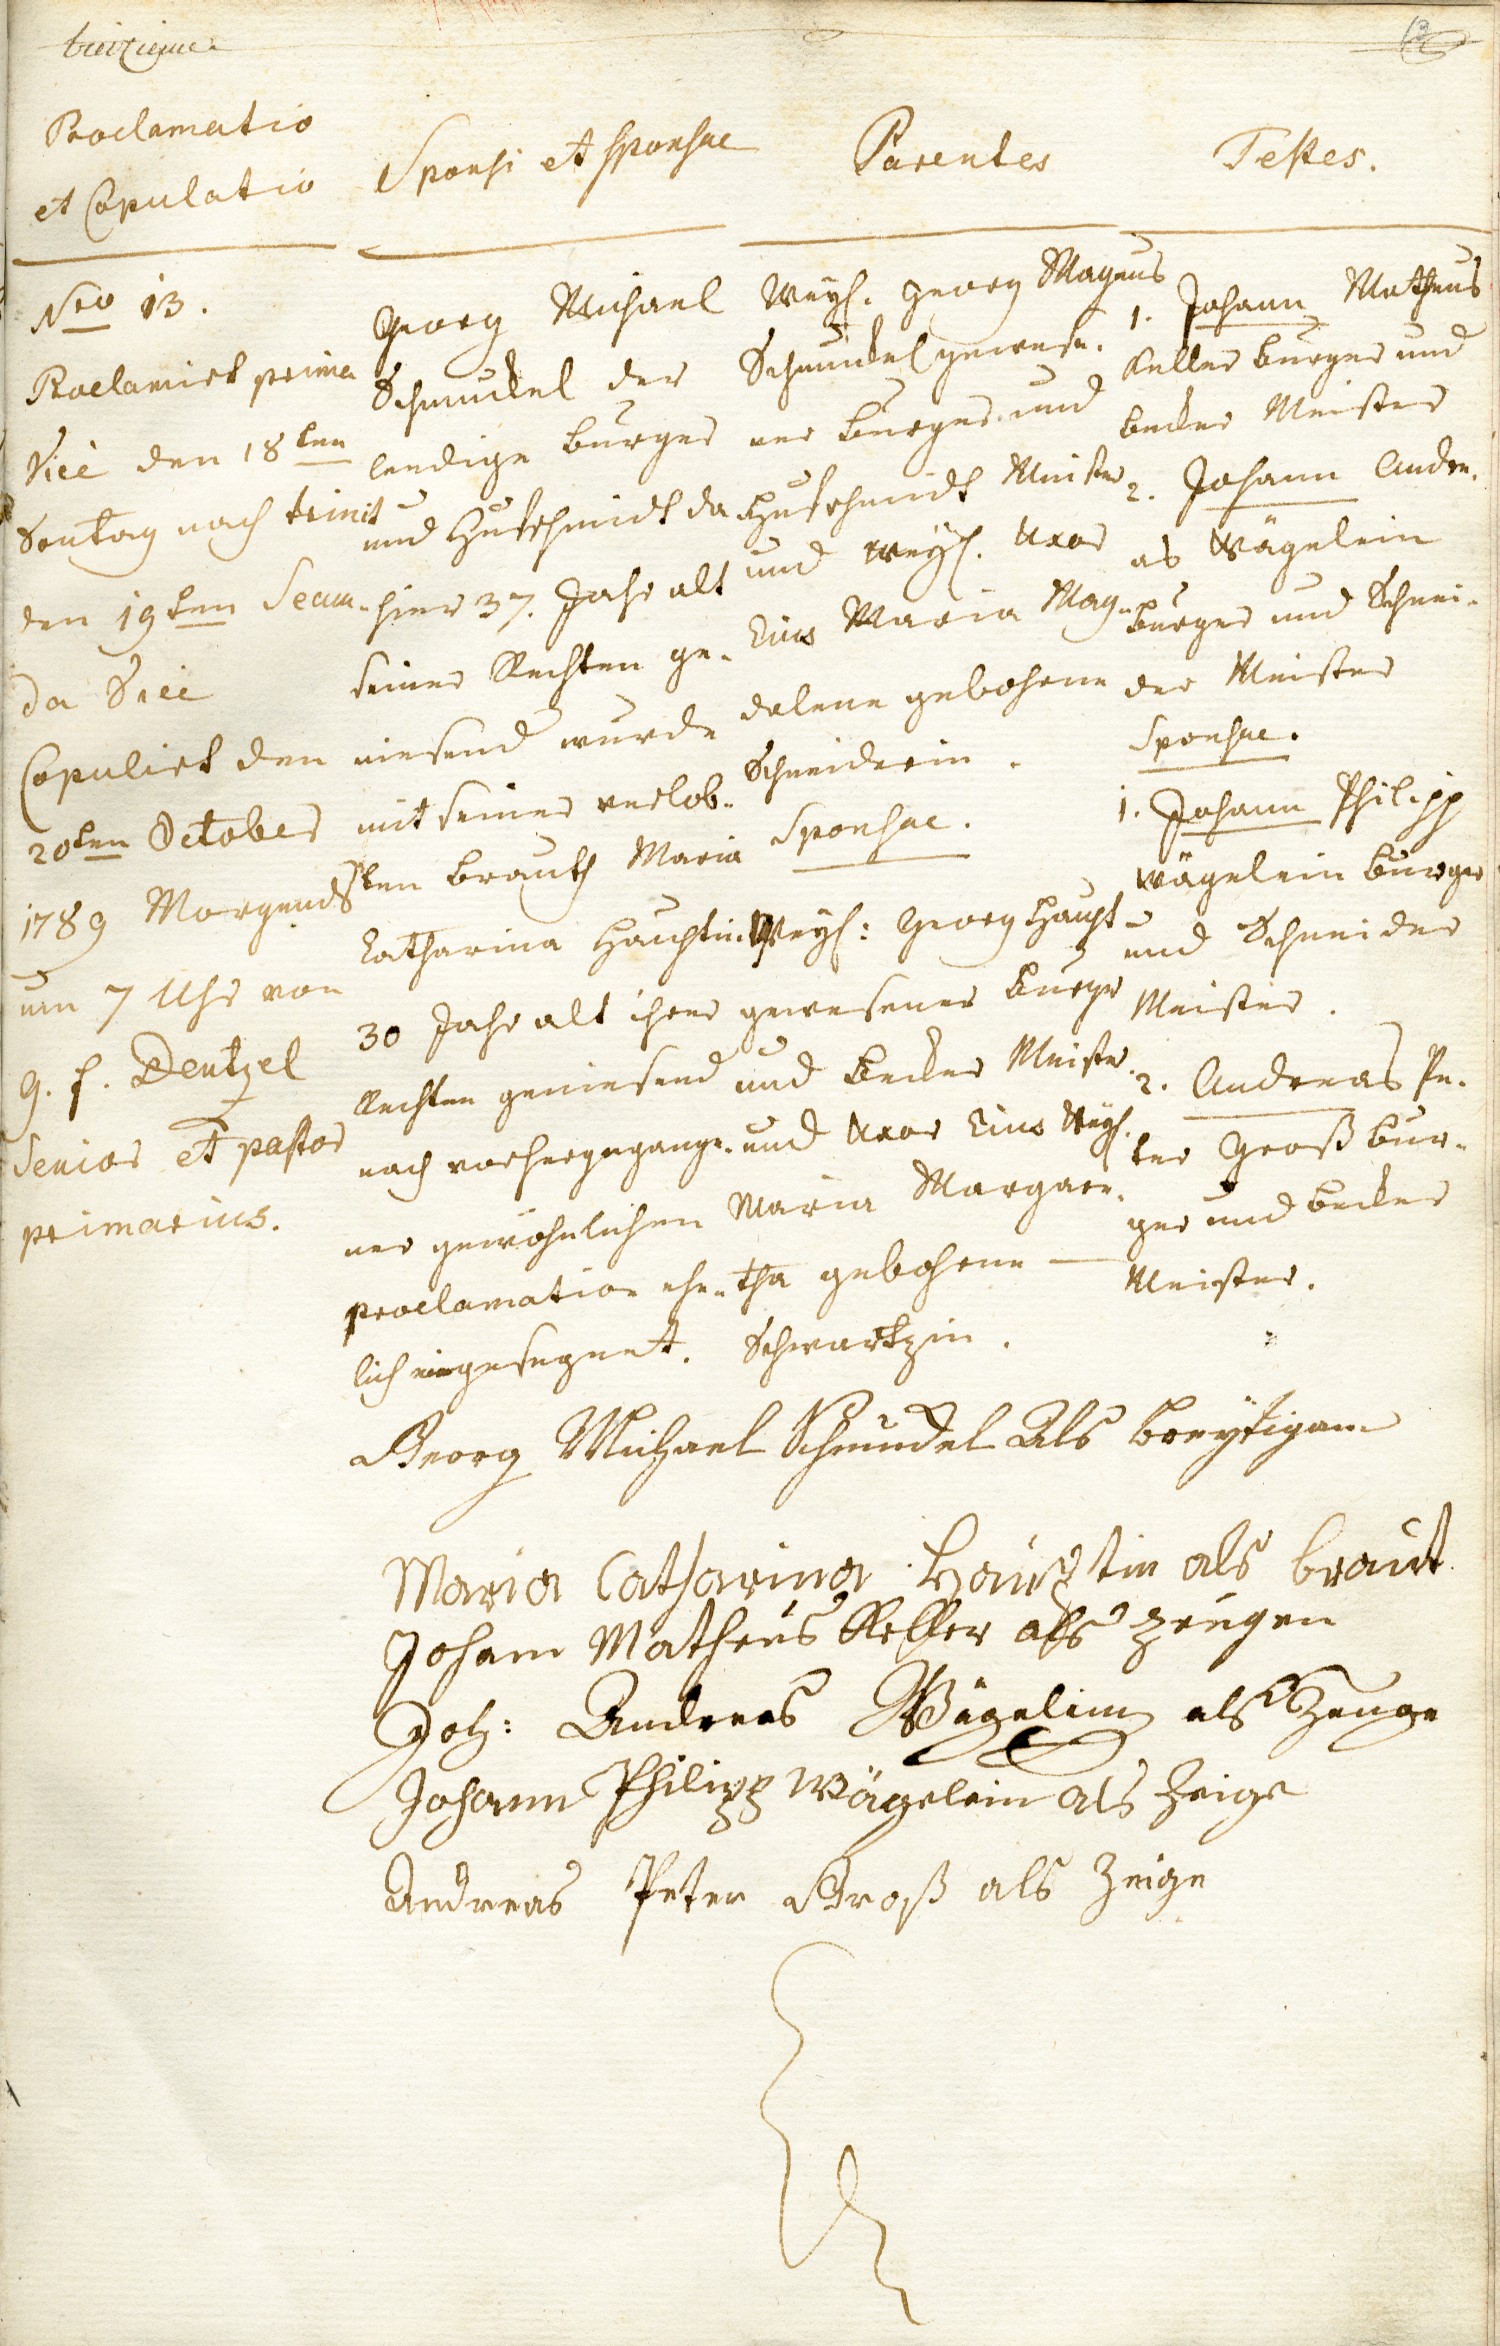 treizieme
13
Proclamatio
et Copulatio
Sponsi et sponsae
Parentes
Testes.
Nro 13.
Proclamirt prima
Vice den 18ten
Sontag nach trinit
den 19ten Secun-
da Vice
Copulirt den
20ten October
1789 Morgends
um 7 Uhr von
G. f. Dentzel
Senior et pastor
primarius.
Georg Michael
Schmuckel der
leedige burger
und Hufschmidt da
hier 37. Jahr alt
seiner Rechten ge-
niesend wurde
mit seiner verlob-
ten brauth Maria
Catharina Hauptin
30 Jahr alt ihrer
Rechten geniesend
nach vorhergegange-
ner gewöhnlichen
proclamation ehe-
lich eingesegnet.
Weyl. Georg Magnus
Schmuckel gewese-
ner burger und
Hufschmidt Meister
und weyl. Uxor
Eius Maria Mag-
dalena gebohrne
Schneiderin.
Sponsae.
Weyl: Georg Haupt
gewesener burger
und becker Meister
und Uxor Eius Weyl.
Maria Margare-
tha gebohrne
Schwartzin.
1. Johann Matheus
Keller burger und
becker Meister
2. Johann Andre-
as Wägelein
burger und Schnei-
der Meister
Sponsae.
1. Johann Philipp
Wägelein burger
und Schneider
Meister.
2. Andreas Pe-
ter Groß bur-
ger und becker
Meister.
Georg Michael Schmuckel Als breytigam
Maria Catharina Hauptin als braut
Johann Matheus Keller als zeugen
Joh: Andreas Wägelin als Zeuge
Johann Philipp Wägelein als Zeige
Andreas Peter Groß als Zeige